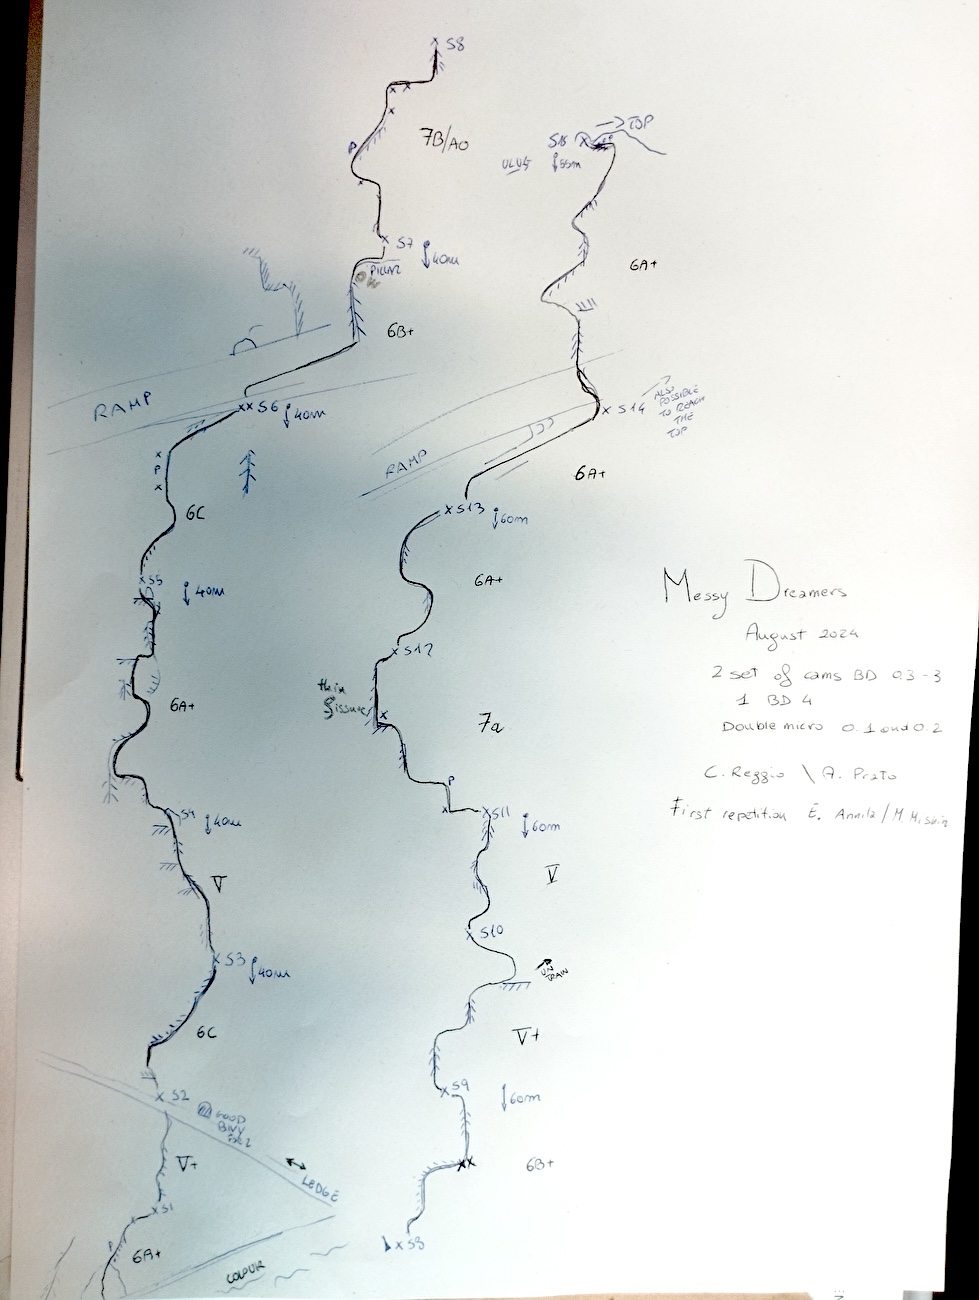 S8
7B/A0
P
S7
40m
PILLAR
6B+
RAMP
S6
40m
P
6C
S5
40m
6A+
S4
40m
V
S3
40m
6C
S2
GOOD
BIVY
FOR 2
LEDGE
V+
S1
P
6A+
COLOUR
TOP
S15
55m
6A+
S14
ALSO
POSSIBLE
TO REACH
THE
TOP
RAMP
6A+
S13
60m
6A+
S12
thin
fissure
7a
P
S11
60m
V
S10
UN
TRAIN
V+
S9
60m
6B+
S8
Messy Dreamers
August 2024
2 set of cams BD 0.3-3
1 BD 4
Double micro 0.1 and 0.2
C. Reggio \ A. Prato
First repetition E. Annila / M.